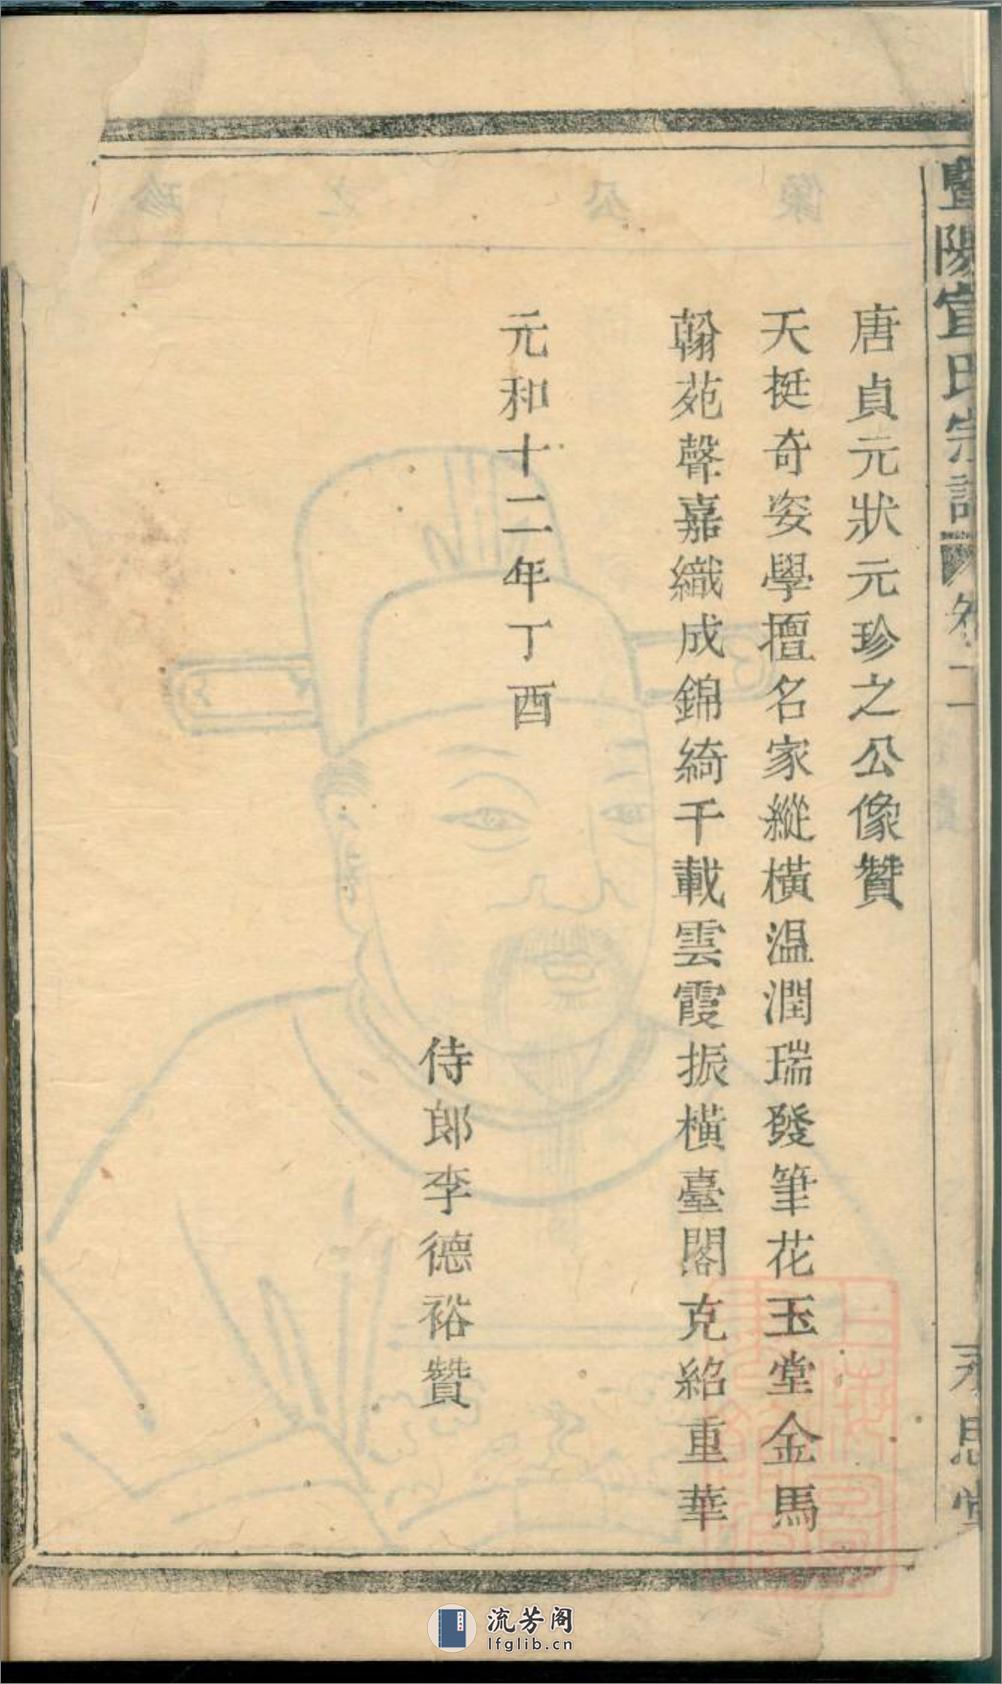 暨陽宣氏宗譜
永思堂
唐貞元狀元珍之公像贊
天挺奇姿學擅名家縱橫温潤瑞發筆花玉堂金馬
翰苑聲嘉織成錦綺千載雲霞振橫臺閣克紹重華
元和十二年丁酉
侍郎李德裕贊
流芳阁
lfglib.cn